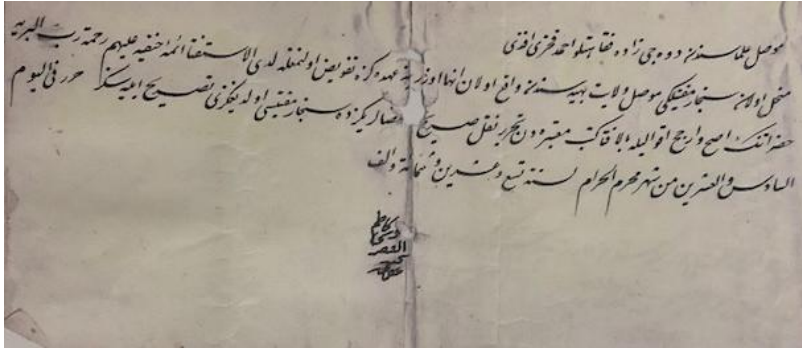 موصل علماسندن دوه جی زاده فقاهتلو احمد فخری افندی
منحل اولان سنجار مفتیلكی موصل ولایت بهیه سندن واقع اولان انها اوزرینه عهده كزه تفویض اولنمغله لدی الاستفتا ائمه حنفیه علیهم رحمة رب البریه
حضراتنك اصح وارجح اقوالیله الافا كتب معتبره دن تحریر نقل صریح امضالریكزده سنجار مفتیسی اولدیغكزی تصریح ایلیه سز حرر فی الیوم
السادس والعشرین من شهر محرم الحرام لسنة تسع وعشرین وثلثمائة والف